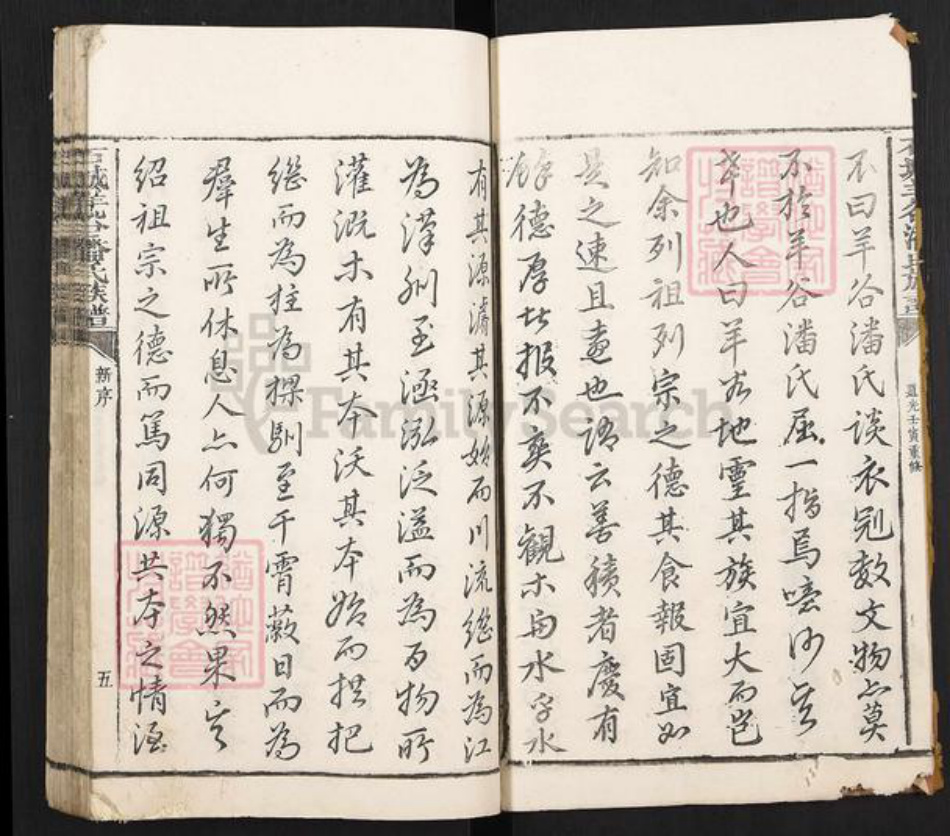 不曰羊谷潘氏談衣冠數文物亦莫
不於羊谷潘氏屈一指焉噫何其
盛也人曰羊谷地靈其族宜大而豈
知余列祖列宗之德其食報固宜如
是之速且遠也語云善積者慶有
餘德厚者報不爽不觀木與水乎水
有其源濬其源始而川流繼而為江
為漢刖至涵泓泛溢而為百物所
灌溉木有其本沃其本始而拱把
繼而為柱為楝馴至干霄蔽日而為
群生所休息人亦何獨不然果能
紹祖宗之德而篤同源共本之情
石城羊谷潘氏族譜
道光壬寅重修
石城羊谷潘氏族譜
新序
五
FamilySearch